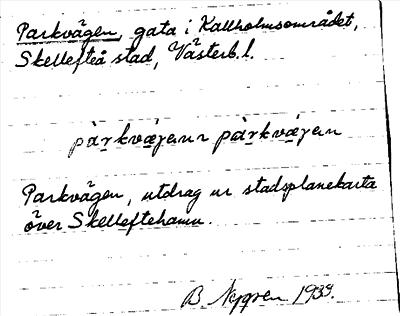 Parkvägen, gata i Kallholmsområdet,
Skellefteå stad, Västerb. l.
Parkvägen, utdrag ur stadsplanekarta
över Skelleftehamn.
B. Nygren 1934.